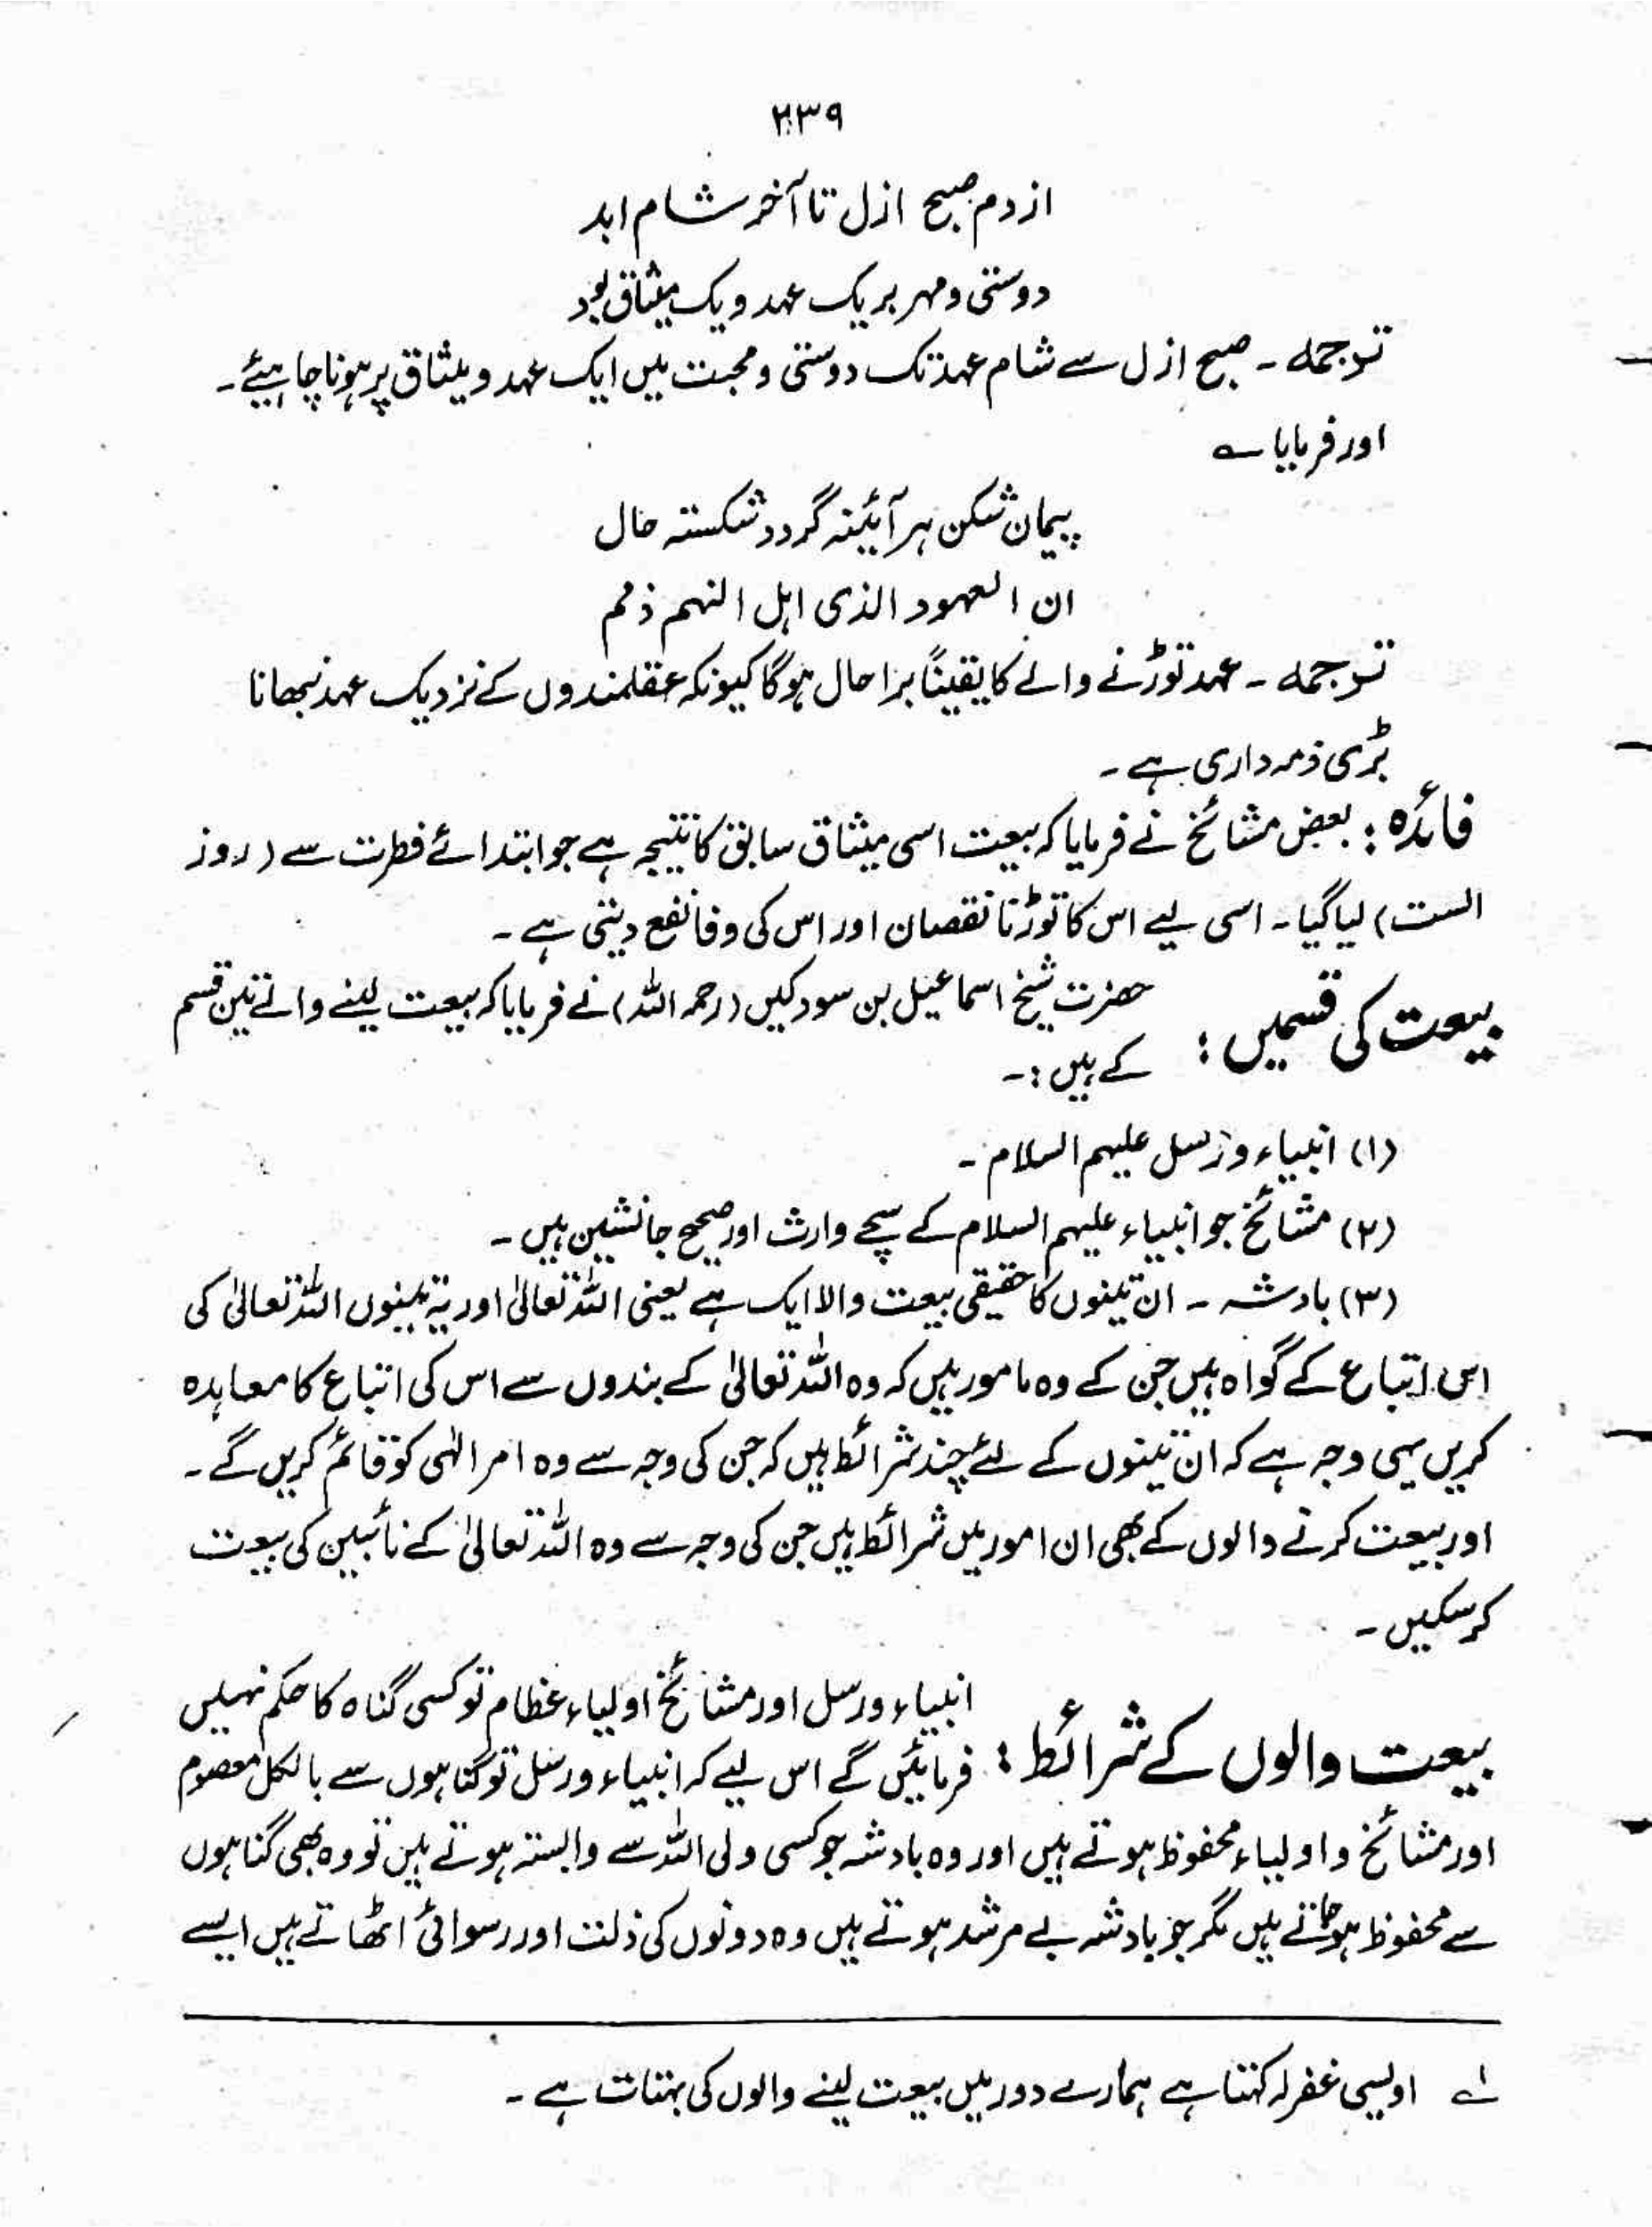 ۲۳۹
از دم صبح ازل تا آخر شام ابد
دوستی و مہر بر یک عہد و یک میثاق بود
ترجمہ ۔ صبح ازل سے شام عہد تک دوستی و محبت میں ایک عہد و میثاق پر ہونا چاہیئے ۔
اور فرمایا ؎
پیمان شکن ہر آئینہ گردد شکستہ حال
ان العہود الذی اہل النہم ذمم
ترجمہ ۔ عہد توڑنے والے کا یقیناً برا حال ہوگا کیونکہ عقلمندوں کے نزدیک عہد نبھانا
بڑی ذمہ داری ہے ۔
فائدہ : بعض مشائخ نے فرمایا کہ بیعت اسی میثاق سابق کا نتیجہ ہے جو ابتدائے فطرت سے ( روز
الست ) لیا گیا ۔ اسی لیے اس کا توڑنا نقصان اور اس کی وفا نفع دیتی ہے ۔
بیعت کی قسمیں : حضرت شیخ اسماعیل بن سودکیں ( رحمہ اللہ ) نے فرمایا کہ بیعت لینے والے تین قسم
کے ہیں :۔
(۱) انبیاء و رسل علیہم السلام ۔
(۲) مشائخ جو انبیاء علیہم السلام کے سچے وارث اور صحیح جانشین ہیں ۔
(۳) بادشہ ۔ ان تینوں کا حقیقی بیعت والا ایک ہے یعنی اللہ تعالیٰ اور یہ تینوں اللہ تعالیٰ کی
اس اتباع کے گواہ ہیں جن کے وہ مامور ہیں کہ وہ اللہ تعالیٰ کے بندوں سے اس کی اتباع کا معاہدہ
کریں یہی وجہ ہے کہ ان تینوں کے لئے چند شرائط ہیں کہ جن کی وجہ سے وہ امر الٰہی کو قائم کریں گے ۔
اور بیعت کرنے والوں کے بھی ان امور میں شرائط ہیں جن کی وجہ سے وہ اللہ تعالیٰ کے نائبین کی بیعت
کر سکیں ۔
بیعت والوں کے شرائط : انبیاء و رسل اور مشائخ اولیاء عظام تو کسی گناہ کا حکم نہیں
فرمائیں گے اس لیے کہ انبیاء و رسل تو گناہوں سے بالکل معصوم
اور مشائخ و اولیاء محفوظ ہوتے ہیں اور وہ بادشہ جو کسی ولی اللہ سے وابستہ ہوتے ہیں تو وہ بھی گناہوں
سے محفوظ ہو جاتے ہیں مگر جو بادشہ بے مرشد ہوتے ہیں وہ دونوں کی ذلت اور رسوائی اٹھاتے ہیں ایسے
لے اویسی غفرلہ کہتا ہے ہمارے دور میں بیعت لینے والوں کی بہتات ہے ۔